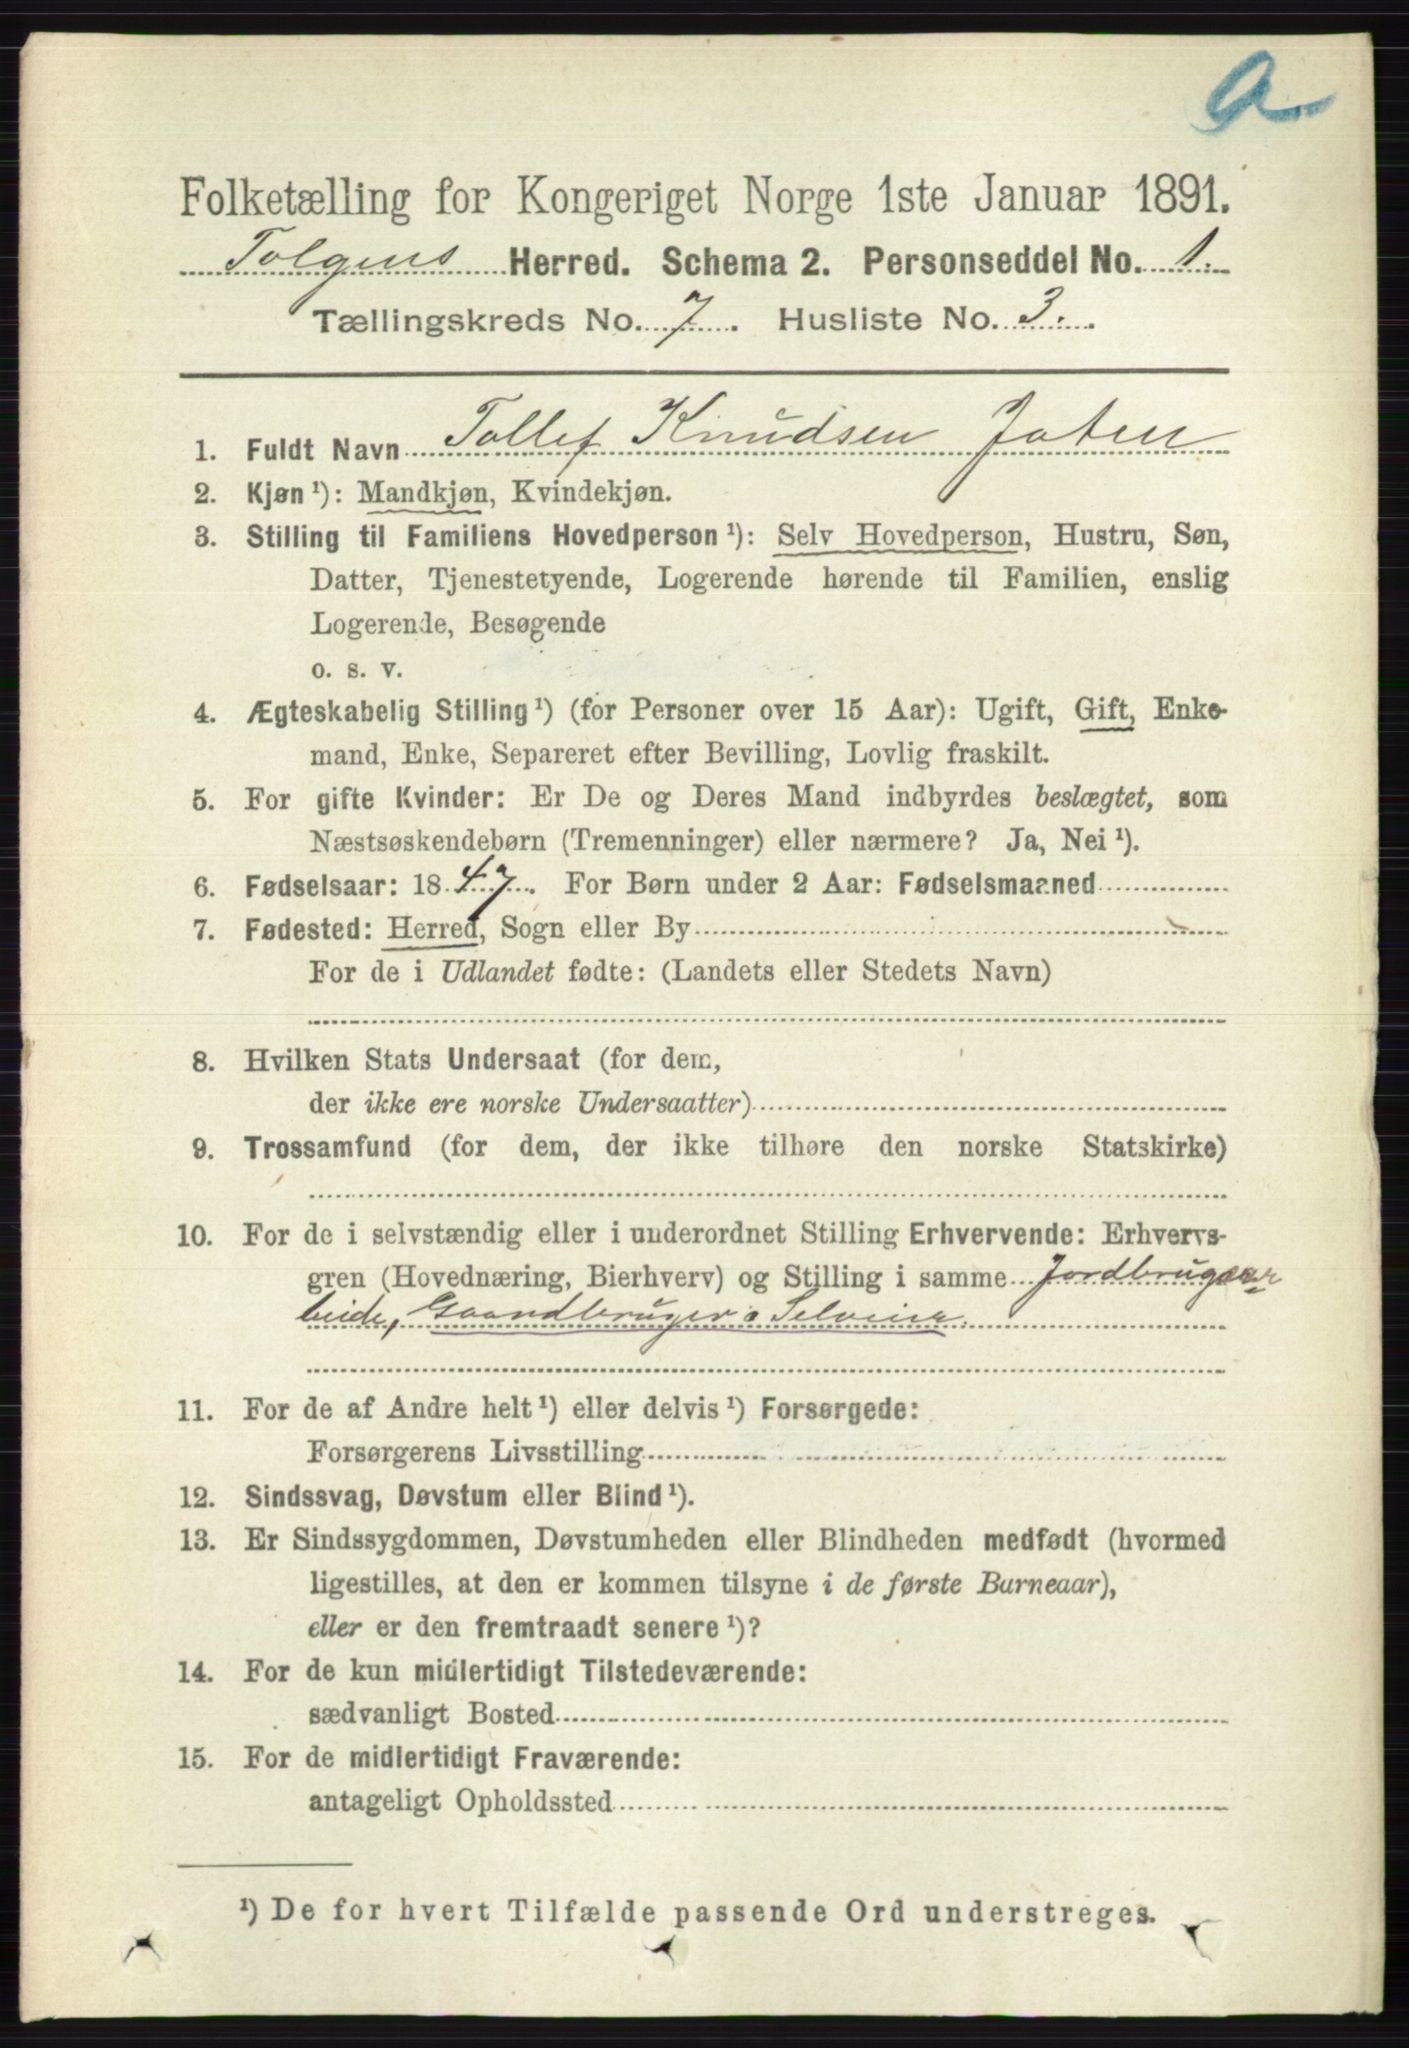 a
Folketælling for Kongeriget Norge 1ste Januar 1891.
Tolgens Herred. Schema 2. Personseddel No. 1.
Tællingskreds No. 7. Husliste No. 3.
1. Fuldt Navn Tollef Knudsen Joten
2. Kjøn ¹): Mandkjøn, Kvindekjøn.
3. Stilling til Familiens Hovedperson ¹): Selv Hovedperson, Hustru, Søn,
Datter, Tjenestetyende, Logerende hørende til Familien, enslig
Logerende, Besøgende
o. s. v.
4. Ægteskabelig Stilling ¹) (for Personer over 15 Aar): Ugift, Gift, Enke-
mand, Enke, Separeret efter Bevilling, Lovlig fraskilt.
5. For gifte Kvinder: Er De og Deres Mand indbyrdes beslægtet, som
Næstsøskendebørn (Tremenninger) eller nærmere? Ja, Nei ¹).
6. Fødselsaar: 1847. For Børn under 2 Aar: Fødselsmaaned
7. Fødested: Herred, Sogn eller By
For de i Udlandet fødte: (Landets eller Stedets Navn)
8. Hvilken Stats Undersaat (for dem,
der ikke ere norske Undersaatter)
9. Trossamfund (for dem, der ikke tilhøre den norske Statskirke)
10. For de i selvstændig eller i underordnet Stilling Erhvervende: Erhvervs-
gren (Hovednæring, Bierhverv) og Stilling i samme Jordbrugsar
beide, Gaardbruger Selveier.
11. For de af Andre helt ¹) eller delvis ¹) Forsørgede:
Forsørgerens Livsstilling
12. Sindssvag, Døvstum eller Blind ¹).
13. Er Sindssygdommen, Døvstumheden eller Blindheden medfødt (hvormed
ligestilles, at den er kommen tilsyne i de første Barneaar),
eller er den fremtraadt senere ¹)?
14. For de kun midlertidigt Tilstedeværende:
sædvanligt Bosted
15. For de midlertidigt Fraværende:
antageligt Opholdssted
¹) De for hvert Tilfælde passende Ord understreges.